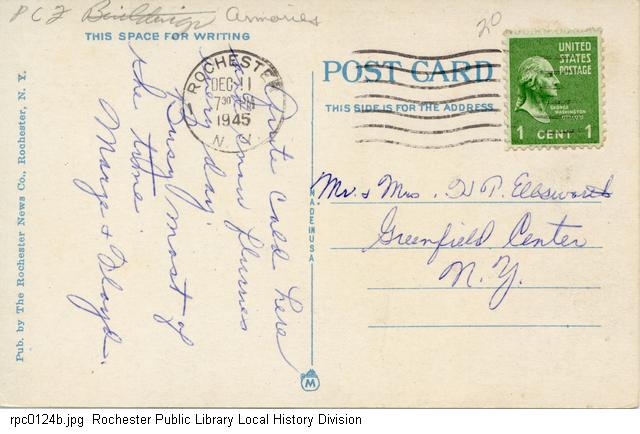 PCZ Buildings Armories
20
THIS SPACE FOR WRITING
ROCHESTER
DEC 11
7 30 PM
1945
N. Y.
POST CARD
THIS SIDE IS FOR THE ADDRESS
UNITED
STATES
POSTAGE
GEORGE
WASHINGTON
1 CENT 1
Quite cold here
and snow flurries
every day.
Busy most of
the time.
Marge & Floyd.
Mr. & Mrs. H. P. Ellsworth
Greenfield Center
N. Y.
MADE IN USA
M
Pub. by The Rochester News Co., Rochester, N. Y.
rpc0124b.jpg Rochester Public Library Local History Division